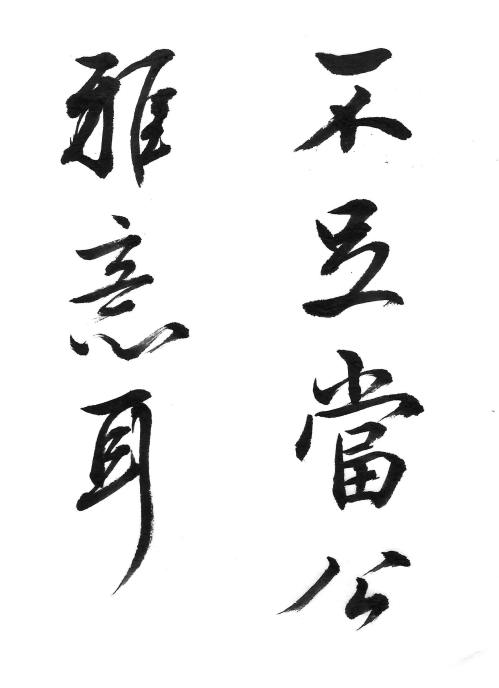 不足當公
雅意耳